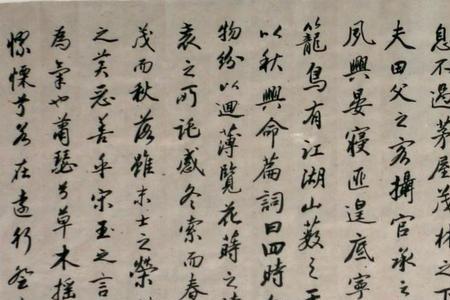 息不過茅屋茂林之下
夫田父之客攝官承
風興晏寢匪遑底寧
籠鳥有江湖山藪之
以秋興命篇詞曰四時
物紛以迴薄覽花蒔之
衰之所託感冬索而春
茂而秋落雖末士之榮
之美惡善乎宋玉之言
為氣也蕭瑟兮草木搖
憀慄兮若在遠行登